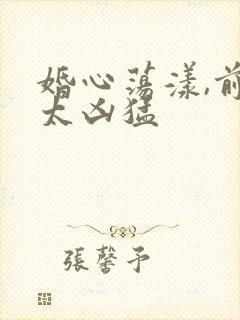 婚心荡漾,前
太凶猛
張馨予